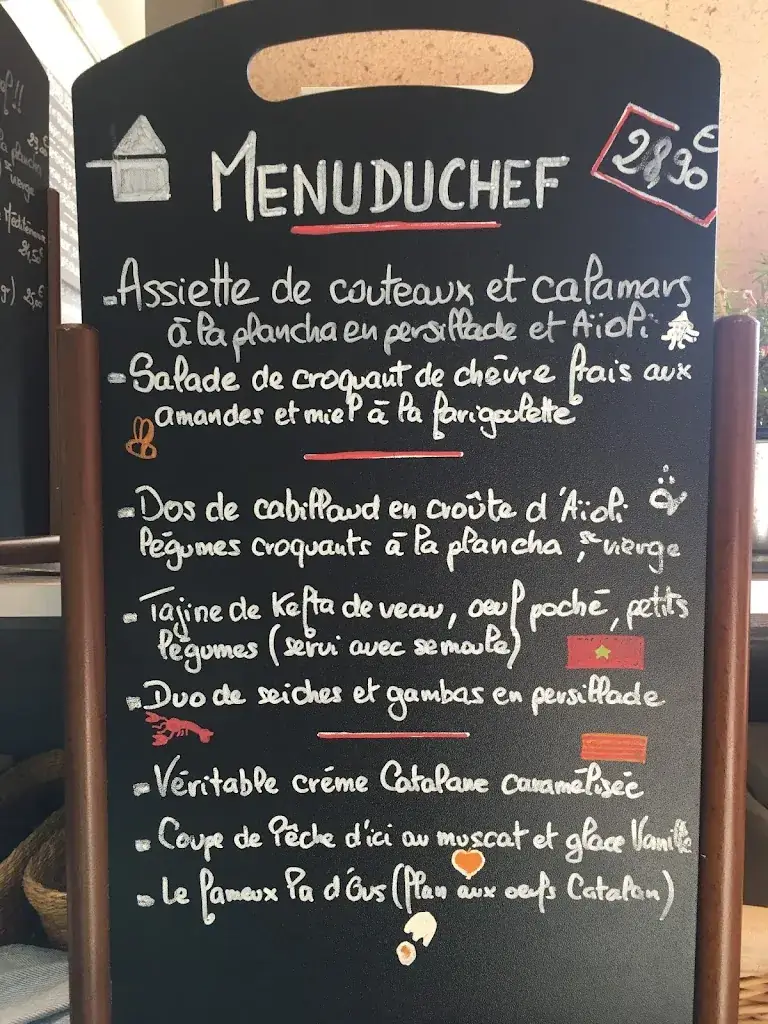 MENU DU CHEF
28,90€
- Assiette de couteaux et calamars
à la plancha en persillade et Aïoli
- Salade de croquant de chèvre frais aux
amandes et miel à la farigoulette
- Dos de cabillaud en croûte d'Aïoli
légumes croquants à la plancha, sce vierge
- Tajine de Kefta de veau, oeuf poché, petits
légumes (servi avec semoule)
- Duo de seiches et gambas en persillade
- Véritable créme Catalane caramélisée
- Coupe de Pêche d'ici au muscat et glace Vanille
- Le fameux Pa d'Ous (flan aux oeufs Catalan)
la plancha
sce vierge
Méditerranée
24,50€